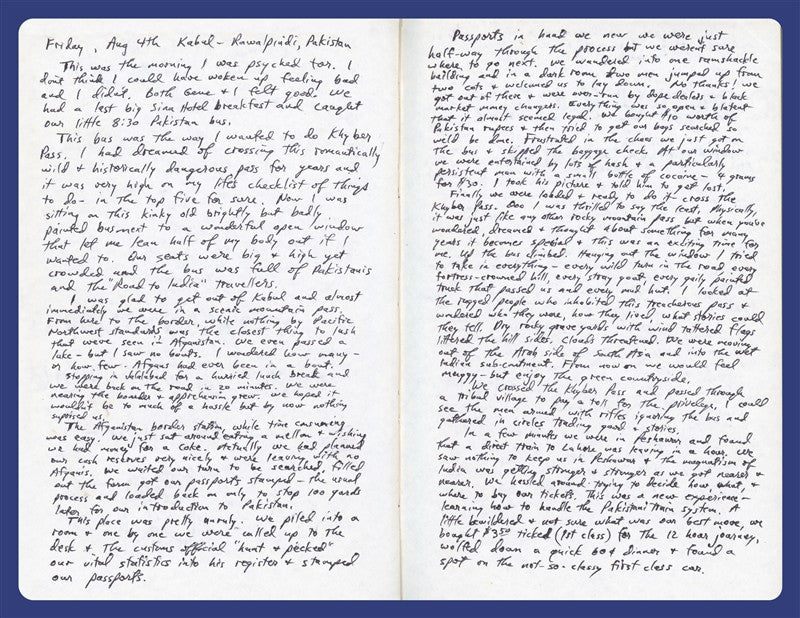 Friday, Aug 4th Kabul - Rawalpindi, Pakistan
This was the morning I was psyched for. I
don't think I could have woken up feeling bad
and I didn't. Both Gene & I felt good. We
had a last big Sina Hotel breakfast and caught
our little 8:30 Pakistan bus.
This bus was the way I wanted to do Khyber
Pass. I had dreamed of crossing this romantically
wild & historically dangerous pass for years and
it was very high on my lifes checklist of things
to do - in the top five for sure. Now I was
sitting on this kinky old brightly but badly
painted bus next to a wonderful open window
that let me lean half of my body out if I
wanted to. Our seats were big & high yet
crowded and the bus was full of Pakistanis
and the "Road to India" travellers.
I was glad to get out of Kabul and almost
immediately we were in a scenic mountain pass.
From here to the border, while nothing by Pacific
Northwest standards was the closest thing to lush
that we've seen in Afganistan. We even passed a
lake - but I saw no boats. I wondered how many -
or how few - Afgans had ever been in a boat.
Stopping in Jalalabad for a hurried lunch break and
we were back on the road in 20 minutes. We were
nearing the boarder & apprehension grew. We hoped it
wouldn't be to much of a hassle but by now nothing
suprised us.
The Afganistan border station, while time consuming
was easy. We just sat around eating a mellon & wishing
we had money for a Coke. Actually we had planned
our cash reserves very nicely & were leaving with no
Afganis. We waited our turn to be searched, filled
out the form got our passports stamped - the usual
process and loaded back on only to stop 100 yards
later for our introduction to Pakistan.
This place was pretty unruly. We piled into a
room & one by one we were called up to the
desk & the customs official "hunt & pecked"
our vital statistics into his register & stamped
our passports.
Passports in hand we new we were just
half-way through the process but we weren't sure
where to go next. We wandered into one ramshackle
building and in a dark room two men jumped up from
two cots & welcomed us to lay down. No thanks! We
got out of there & were over-run by dope dealers & black
market money changers. Everything was so open & blatent
that it almost seemed legal. We bought $10 worth of
Pakistan rupees & then tried to get our bags searched so
we'd be done. Frustrated in the chaos we just got on
the bus & skipped the baggage check. At our window
we were entertained by lots of hash & a particularly
persistent man with a small bottle of cocaine - 4 grams
for $30. I took his picture & told him to get lost.
Finally we were loaded & ready to do it - cross the
Khyber Pass. Ooo I was thrilled to say the least. Physically,
it was just like any other rocky mountain pass but when you've
wondered, dreamed & thought about something for many
years it becomes special & this was an exciting time for
me. Up the bus climbed. Hanging out the window I tried
to take in everything - every wild turn in the road every
fortress-crowned hill, every stray goat every gaily painted
truck that passed us and every mud hut. I looked at
the rugged people who inhabited this treacherous pass &
wondered who they were, how they lived, what stories could
they tell. Dry rocky graveyards with wind tattered flags
littered the hill sides. Clouds threatened. We were moving
out of the Arab side of South Asia and into the wet
Indian sub-continent. From now on we would feel
muggy - but enjoy the green countryside.
We crossed the Khyber Pass and passed through
a tribal village to pay a toll for the privelege. I could
see the men armed with rifles ignoring the bus and
gathered in circles trading goods & stories.
In a few minutes we were in Peshawar and found
that a direct train to Lahore was leaving in a hour. We
saw nothing to keep us in Peshawar & the magnatism of
India was getting stronger & stronger as we got nearer &
nearer. We hassled around trying to decide how, what &
where to buy our tickets. This was a new experience -
learning how to handle the Pakistani train system. A
little bewildered & not sure what was our best move, we
bought $3.50 ticked (1st class) for the 12 hour journey,
wolfed down a quick 60¢ dinner & found a
spot on the not-so-classy first class car.